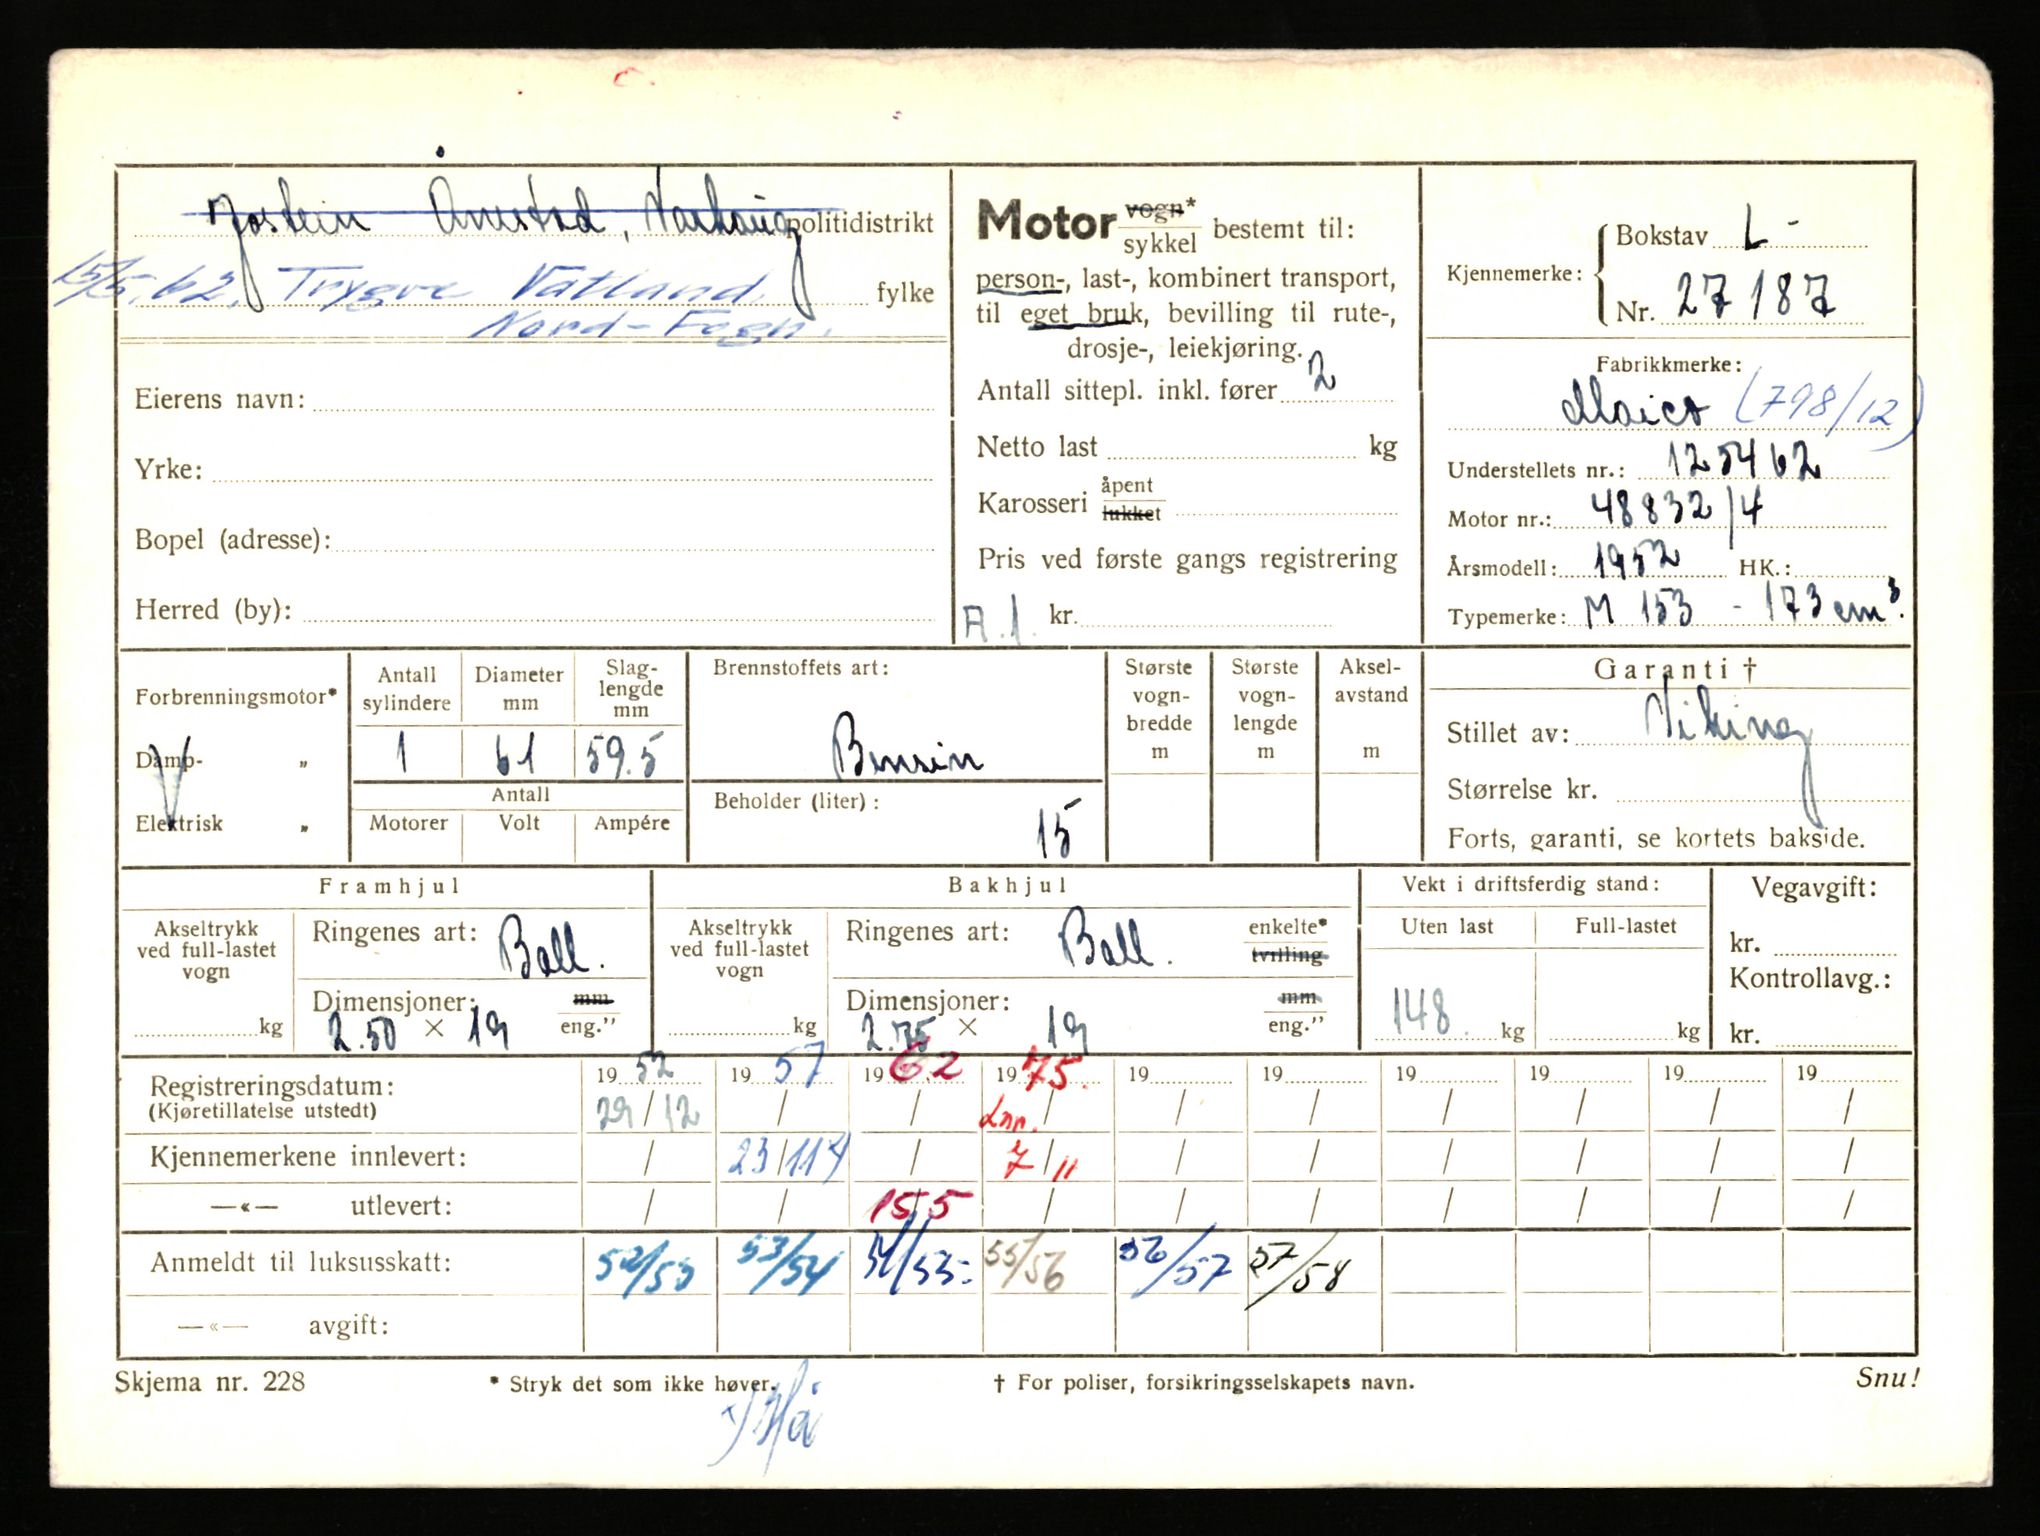 Jostein Ånestad, Varhaug politidistrikt
15/5.62. Trygve Vatland fylke
Nord-Fogn.
Eierens navn:
Yrke:
Bopel (adresse):
Herred (by):
Motor vogn* / sykkel bestemt til:
person-, last-, kombinert transport,
til eget bruk, bevilling til rute-,
drosje-, leiekjøring.
Antall sittepl. inkl. fører 2
Netto last kg
Karosseri åpent / lukket
Pris ved første gangs registrering
A.1. kr.
Kjennemerke: Bokstav L-
Nr. 27187
Fabrikkmerke:
Maico (798/12)
Understellets nr.: 125462
Motor nr.: 48832/4
Årsmodell: 1952 HK.:
Typemerke: M 153 - 173 cm³.
Forbrenningsmotor*
Damp- „
Elektrisk „
Antall sylindere Diameter mm Slag-lengde mm
1 61 59.5
Antall
Motorer Volt Ampére
Brennstoffets art:
Bensin
Beholder (liter):
15
Største vogn-bredde m
Største vogn-lengde m
Aksel-avstand m
Garanti †
Stillet av: Viking
Størrelse kr.
Forts, garanti, se kortets bakside.
Framhjul
Akseltrykk ved full-lastet vogn kg
Ringenes art: Ball.
Dimensjoner: mm
2.50 × 19 eng.”
Bakhjul
Akseltrykk ved full-lastet vogn kg
Ringenes art: Ball. enkelte* tvilling
Dimensjoner: mm
2.75 × 19 eng.”
Vekt i driftsferdig stand:
Uten last Full-lastet
148 kg kg
Vegavgift:
kr.
Kontrollavg.:
kr.
Registreringsdatum: 1952 1957 1962 1975. 19 19 19 19 19 19
(Kjøretillatelse utstedt) 29/12 / / / / / / / / /
Kjennemerkene innlevert: / 23/11 / 7/11 / / / / / /
—«— utlevert: / / 15/5 / / / / / / /
Anmeldt til luksusskatt: 52/53 53/54 54/55- 55/56 56/57 57/58
—«— avgift:
Skjema nr. 228
* Stryk det som ikke høver.
† For poliser, forsikringsselskapets navn.
Snu!